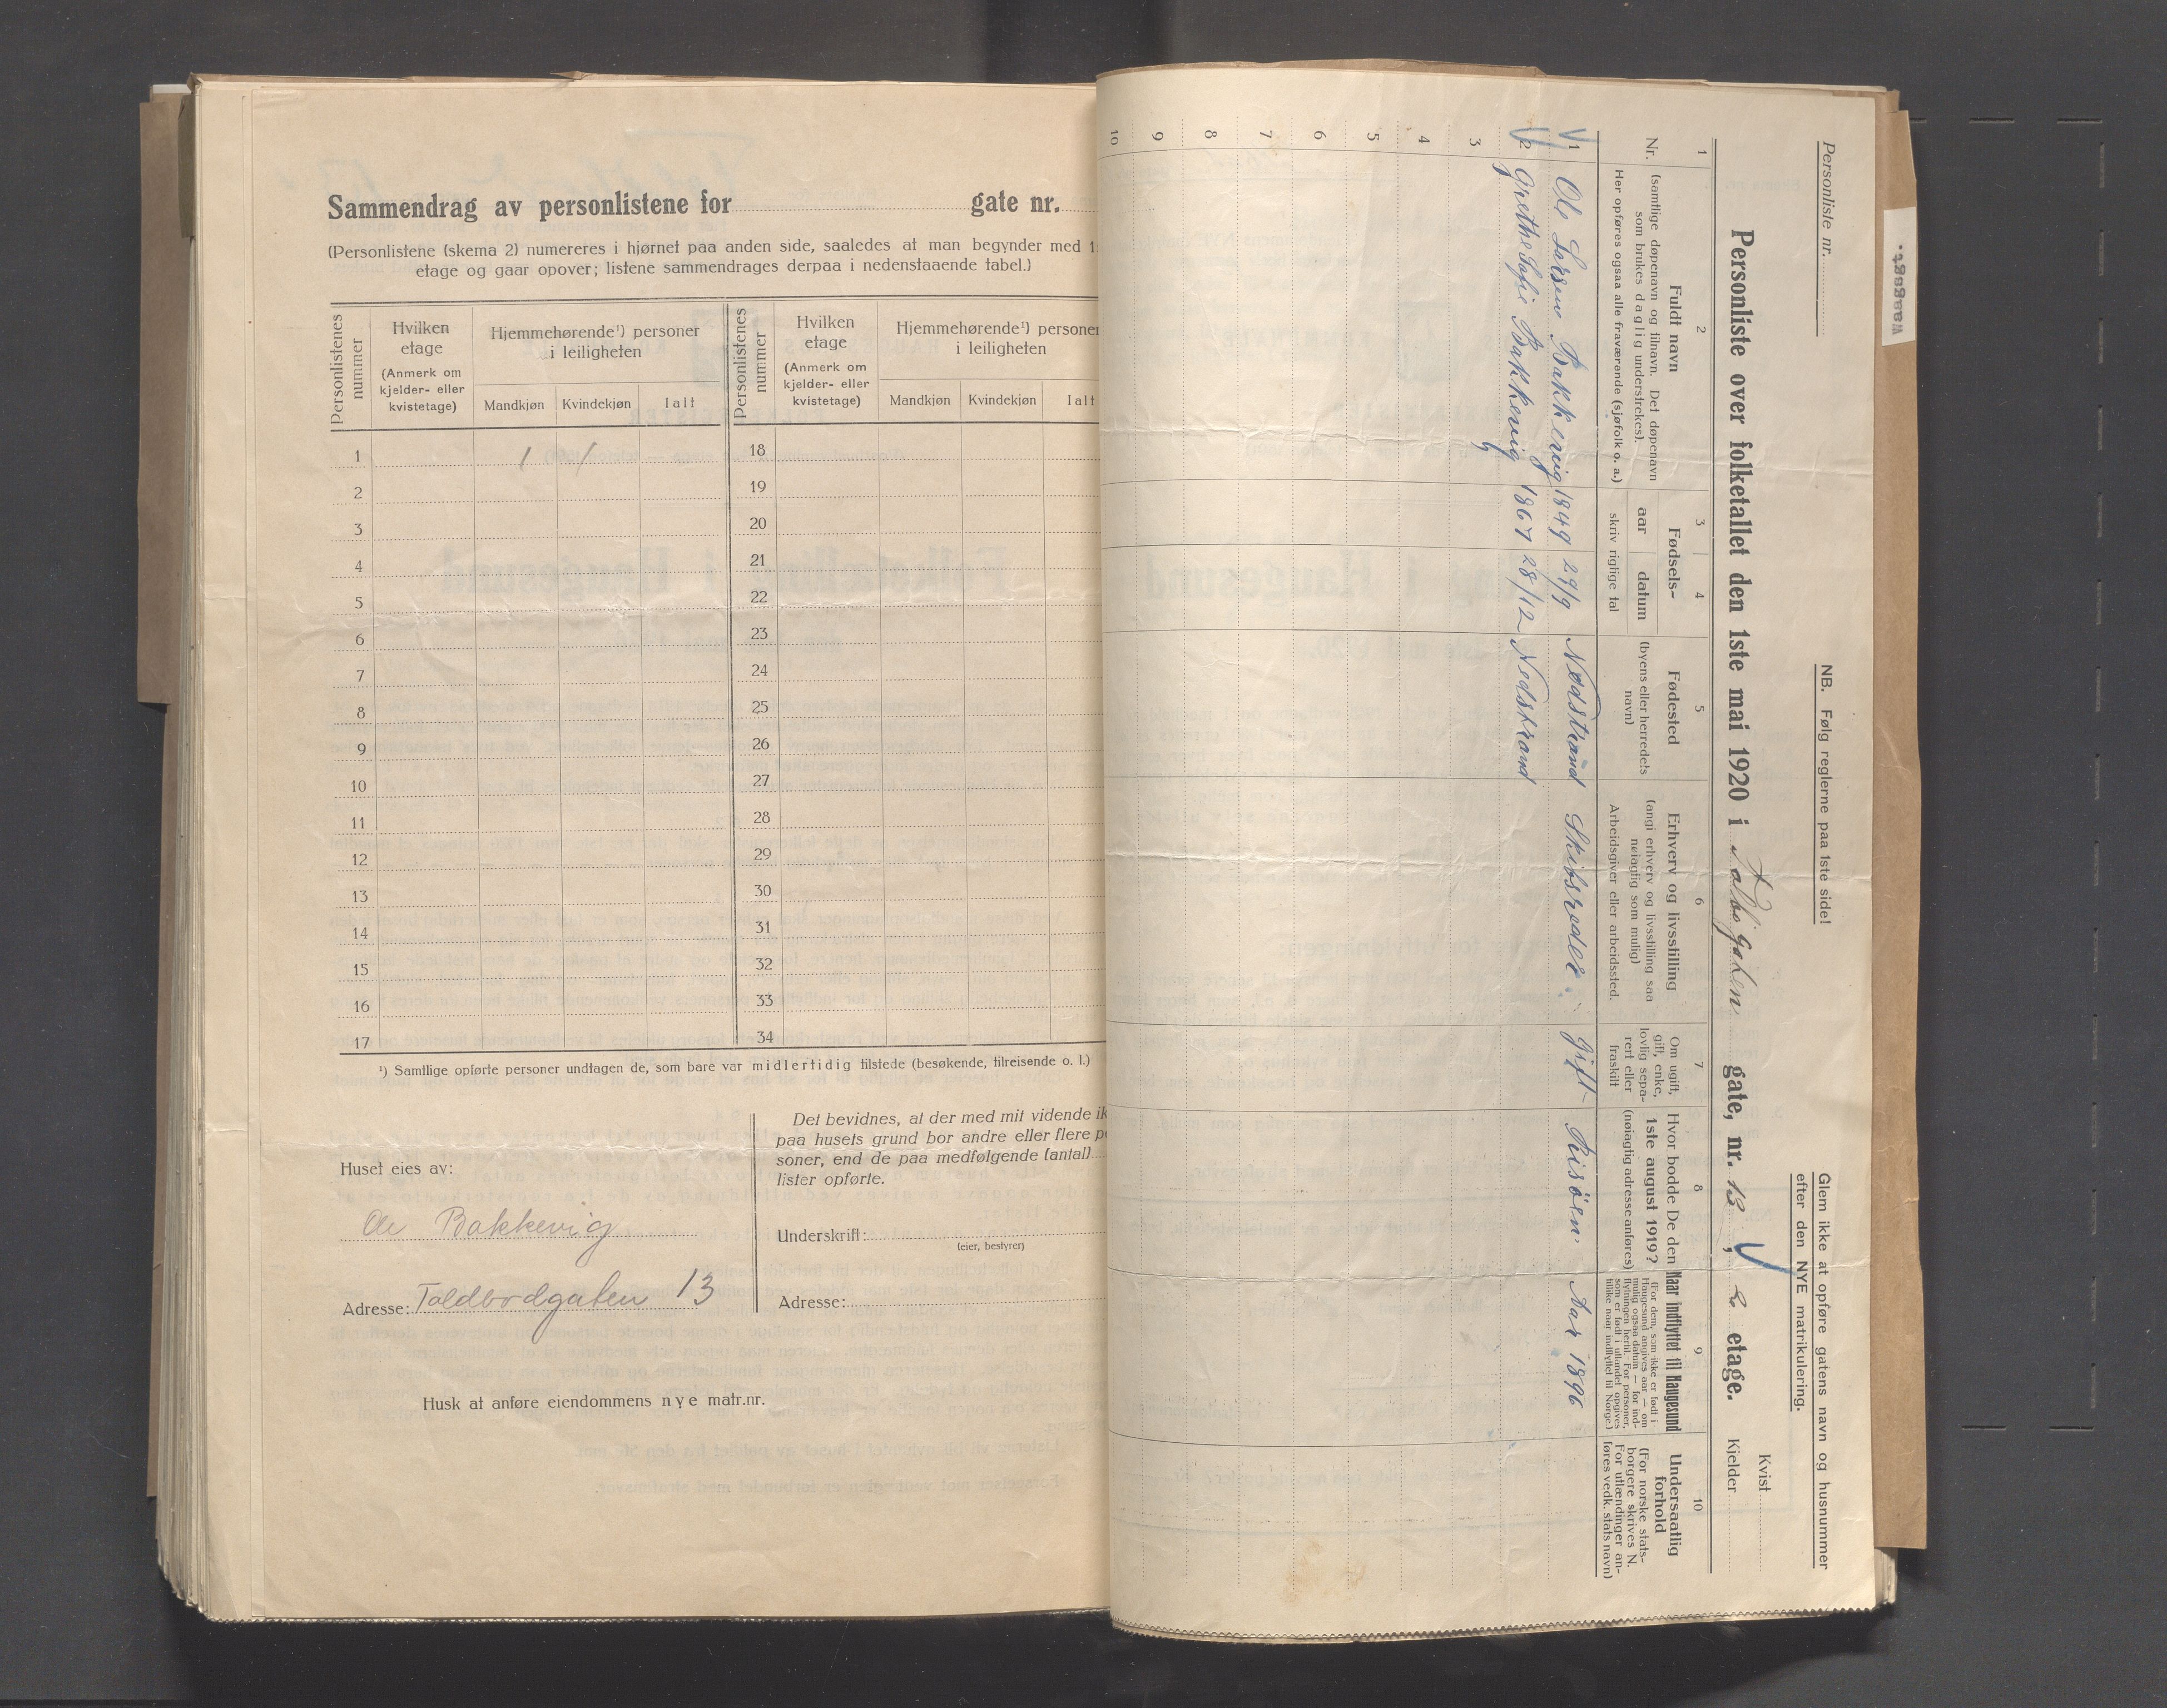 Sammendrag av personlistene for gate nr.
(Personlistene (skema 2) numereres i hjørnet paa anden side, saaledes at man begynder med 1.
etage og gaar opover; listene sammendrages derpaa i nedenstaaende tabel.)
Personlistenes nummer
Hvilken etage
(Anmerk om kjelder- eller kvistetage)
Hjemmehørende¹) personer i leiligheten
Mandkjøn Kvindekjøn Ialt
Personlistenes nummer
Hvilken etage
(Anmerk om kjelder- eller kvistetage)
Hjemmehørende¹) personer i leiligheten
Mandkjøn Kvindekjøn Ialt
1 1 1 18
2 19
3 20
4 21
5 22
6 23
7 24
8 25
9 26
10 27
11 28
12 29
13 30
14 31
15 32
16 33
17 34
¹) Samtlige opførte personer undtagen de, som bare var midlertidig tilstede (besøkende, tilreisende o. l.)
Huset eies av:
Ole Bakkevig
Adresse: Toldbodgaten 13
Det bevidnes, at der med mit vidende ik
paa husets grund bor andre eller flere pe
soner, end de paa medfølgende (antal)
lister opførte.
Underskrift:
(eier, bestyrer)
Adresse:
Husk at anføre eiendommens nye matr.nr.
Personliste nr.
NB. Følg reglerne paa 1ste side!
Glem ikke at opføre gatens navn og husnummer
efter den NYE matrikulering.
Kvist
Personliste over folketallet den 1ste mai 1920 i gate, nr. 13, 2 etage.
Kjelder
1 2 3 4 5 6 7 8 9 10
Nr.
Fuldt navn
(samtlige døpenavn og tilnavn. Det døpenavn
som brukes daglig understrekes).
Her opføres ogsaa alle fraværende (sjøfolk o. a.)
Fødsels-
aar datum
skriv rigtige tal
Fødested
(byens eller herredets
navn)
Erhverv og livsstilling
(angi erhverv og livsstilling saa
nøiagtig som mulig)
Arbeidsgiver eller arbeidssted.
Om ugift,
gift, enke,
lovlig sepa-
rert eller
fraskilt
Hvor bodde De den
1ste august 1919?
(nøiagtig adresse anføres)
Naar indflyttet til Haugesund
(For dem, som ikke er født i
Haugesund angives aar — om
mulig ogsaa datum — for ind-
flytningen hertil. For personer,
som er født i utlandet opgives
tillike naar indflyttet til Norge.)
Undersaatlig
forhold
(For norske stats-
borgere skrives N.
For utlændinger an-
føres vedk. stats navn)
1 Ole Larsen Bakkevig 1849 29/9 Nedstrand Skibsreder. gift Risøen. Aar 1896
2 Grethe Sofie Bakkevig 1867 28/12 Nedstrand
3
4
5
6
7
8
9
10